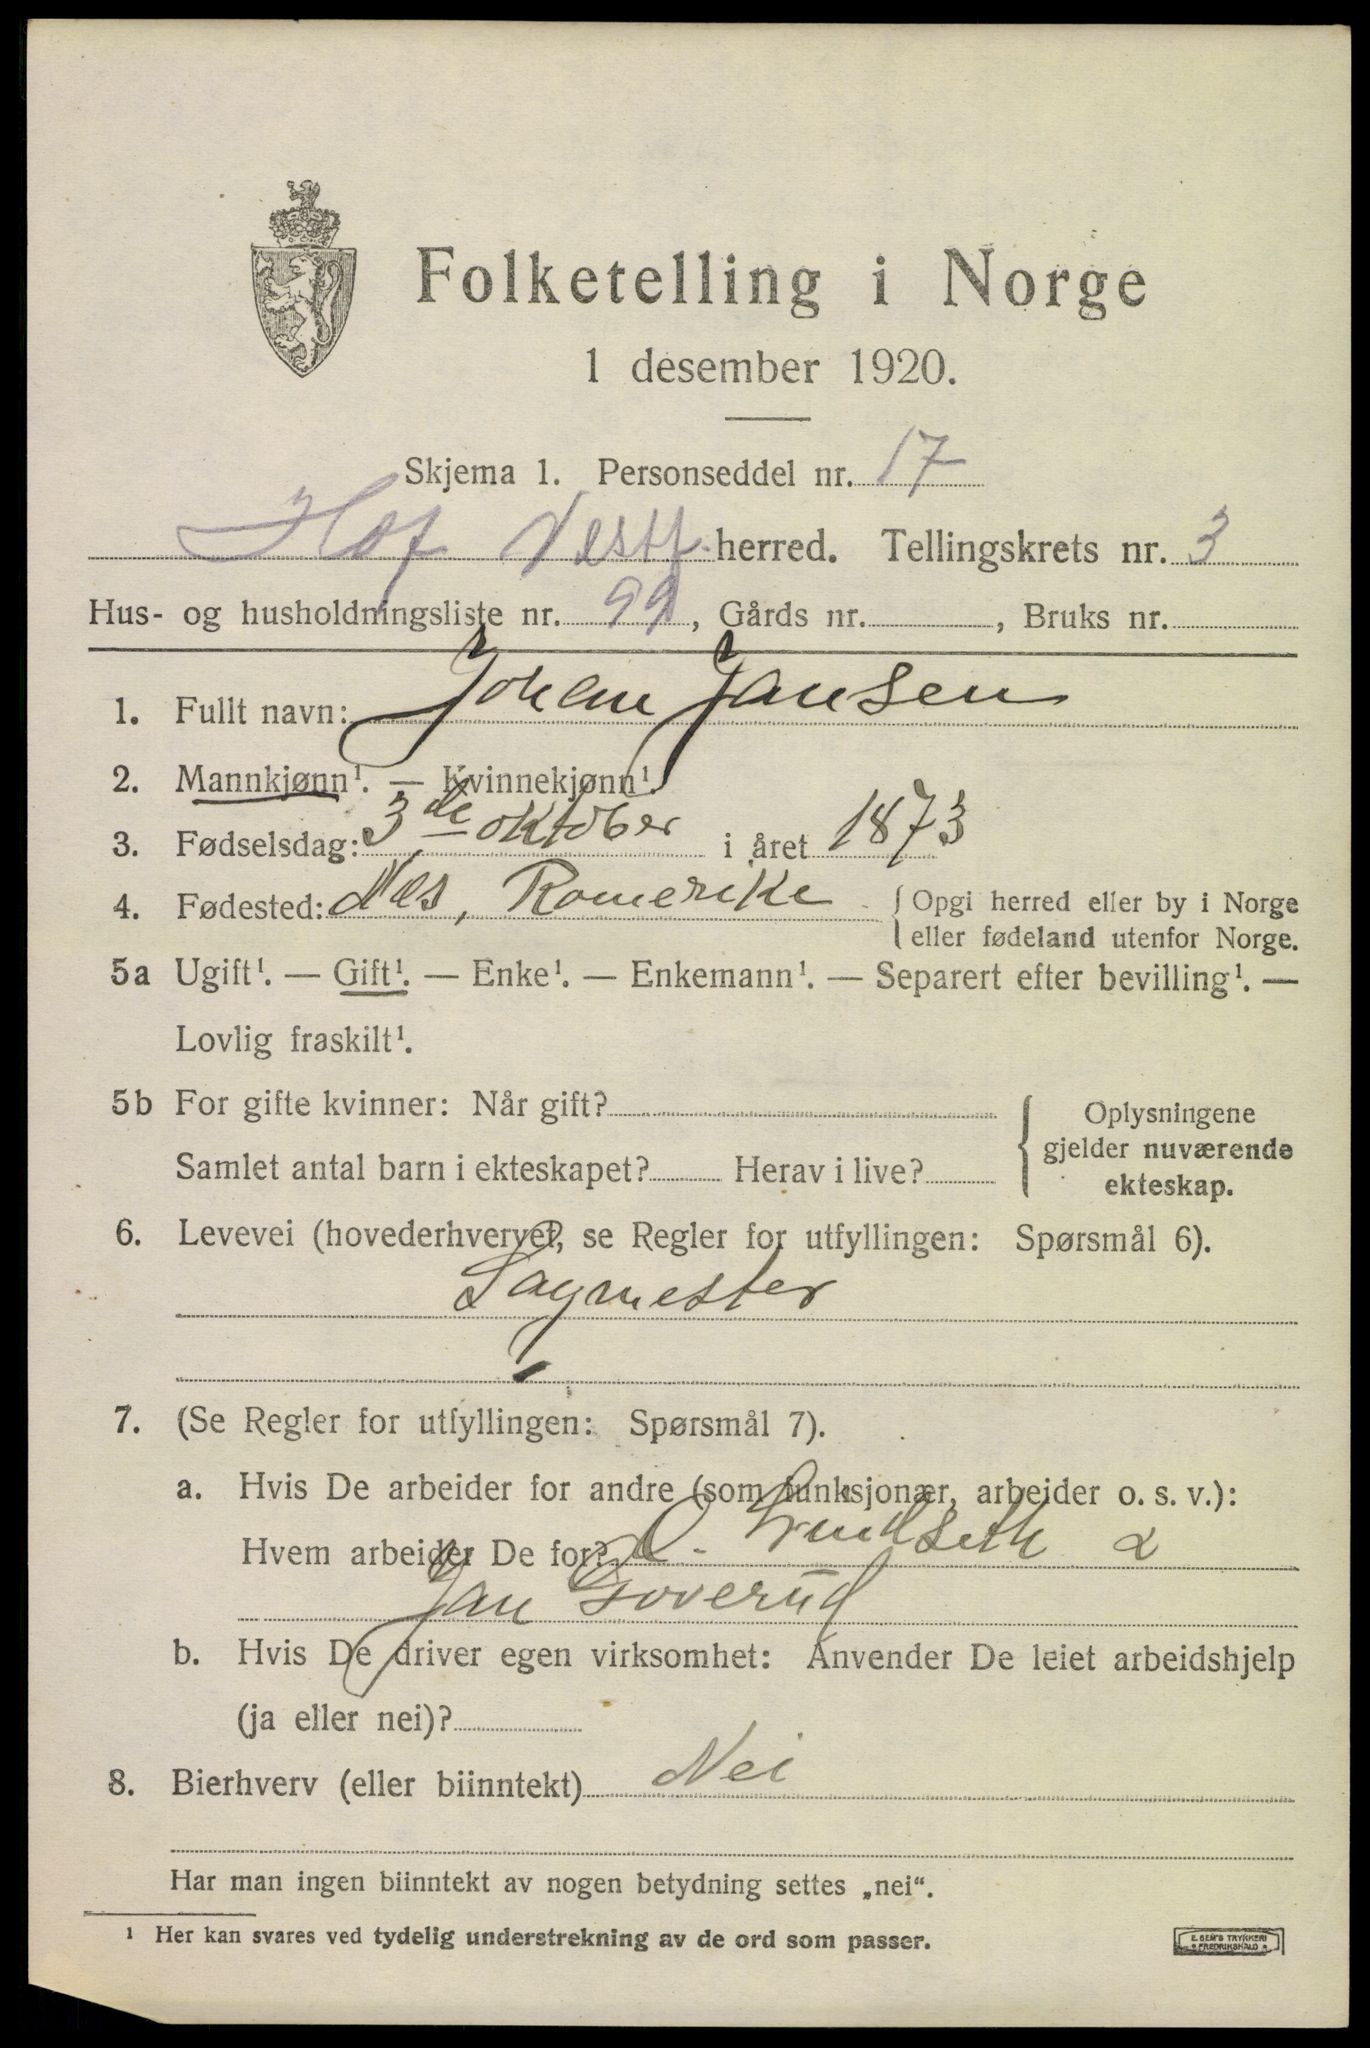 Folketelling i Norge
1 desember 1920.
Skjema 1. Personseddel nr. 17
Hof Vestf. herred. Tellingskrets nr. 3
Hus- og husholdningsliste nr. 99, Gårds nr. , Bruks nr.
1. Fullt navn: Johan Jansen
2. Mannkjønn¹. — Kvinnekjønn¹.
3. Fødselsdag: 3de oktober i året 1873
4. Fødested: Nes, Romerike { Opgi herred eller by i Norge
eller fødeland utenfor Norge.
5a Ugift¹. — Gift¹. — Enke¹. — Enkemann¹. — Separert efter bevilling¹. —
Lovlig fraskilt¹.
5b For gifte kvinner: Når gift? { Oplysningene
gjelder nuværende
Samlet antal barn i ekteskapet? Herav i live?
ekteskap.
6. Levevei (hovederhvervet, se Regler for utfyllingen: Spørsmål 6).
Sagmester
7. (Se Regler for utfyllingen: Spørsmål 7).
a. Hvis De arbeider for andre (som funksjonær, arbeider o. s. v.):
Hvem arbeider De for?
Jan
b. Hvis De driver egen virksomhet: Anvender De leiet arbeidshjelp
(ja eller nei)?
8. Bierhverv (eller biinntekt) Nei
Har man ingen biinntekt av nogen betydning settes „nei“.
¹ Her kan svares ved tydelig understrekning av de ord som passer.
E. SEM'S TRYKKERI
FREDRIKSHALD